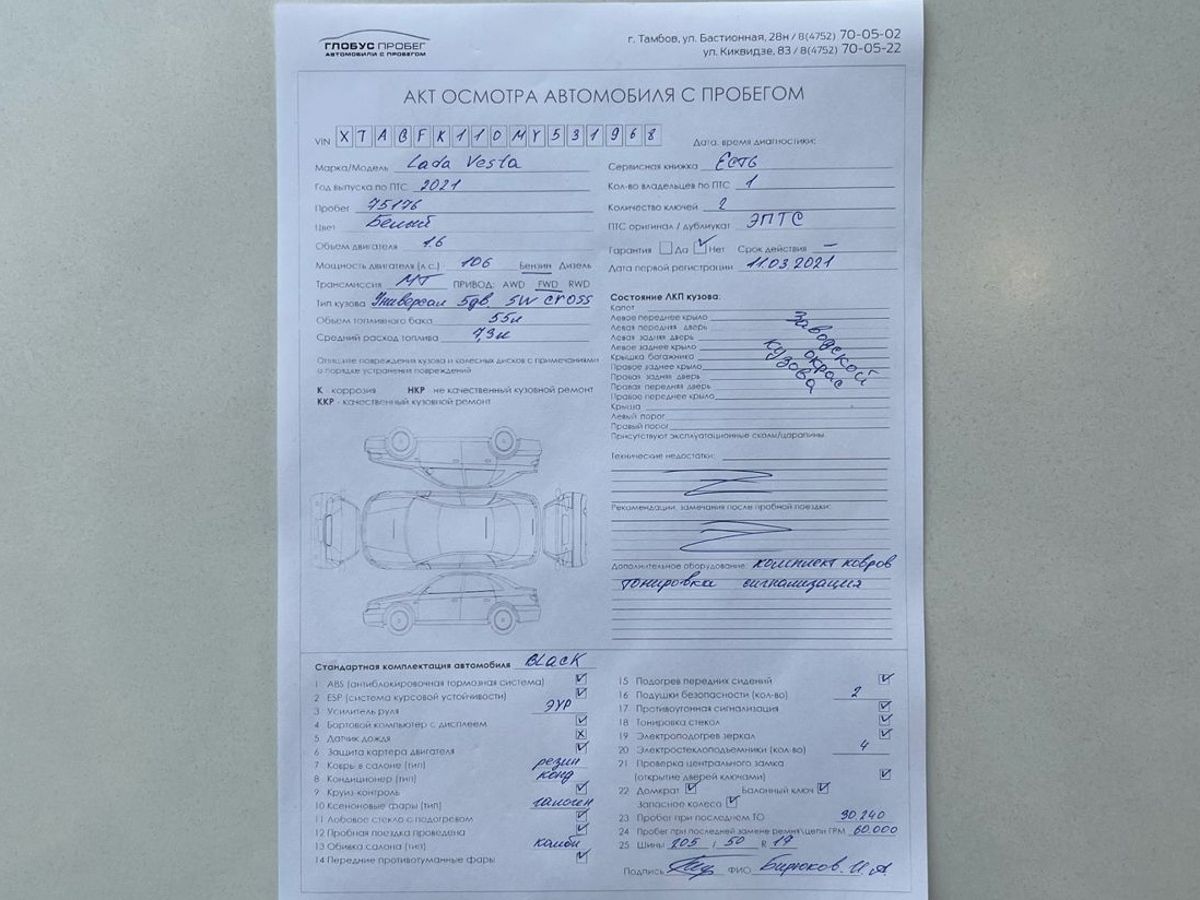 ГЛОБУС ПРОБЕГ
АВТОМОБИЛИ С ПРОБЕГОМ
г. Тамбов, ул. Бастионная, 28н / 8(4752) 70-05-02
ул. Киквидзе, 83 / 8(4752) 70-05-22
АКТ ОСМОТРА АВТОМОБИЛЯ С ПРОБЕГОМ
VIN XTAGFK110MY531968
Дата, время диагностики:
Марка/Модель Lada Vesta
Год выпуска по ПТС 2021
Пробег 75176
Цвет Белый
Объем двигателя 1.6
Мощность двигателя (л.с.) 106 Бензин Дизель
Трансмиссия МТ ПРИВОД: AWD FWD RWD
Тип кузова Универсал 5дв. SW cross
Объем топливного бака 55л
Средний расход топлива 7,3л
Опишите повреждения кузова и колесных дисков с примечаниями
о порядке устранения повреждений
К - коррозия НКР - не качественный кузовной ремонт
ККР - качественный кузовной ремонт
Сервисная книжка Есть
Кол-во владельцев по ПТС 1
Количество ключей 2
ПТС оригинал / дубликат ЭПТС
Гарантия Да Нет Срок действия –
Дата первой регистрации 11.03.2021
Состояние ЛКП кузова:
Капот
Левое переднее крыло
Левая передняя дверь
Левая задняя дверь
Левое заднее крыло
Крышка багажника
Правое заднее крыло
Правая задняя дверь
Правая передняя дверь
Правое переднее крыло
Крыша
Левый порог
Правый порог
Заводской
окрас
кузова
Присутствуют эксплуатационные сколы/царапины.
Технические недостатки:
Рекомендации, замечания после пробной поездки:
Дополнительное оборудование: комплект ковров
тонировка сигнализация
Стандартная комплектация автомобиля BLACK
1 ABS (антиблокировочная тормозная система)
2 ESP (система курсовой устойчивости)
3 Усилитель руля ЭУР
4 Бортовой компьютер с дисплеем
5 Датчик дождя
6 Защита картера двигателя
7 Ковры в салоне (тип) резин
8 Кондиционер (тип) конд
9 Круиз-контроль
10 Ксеноновые фары (тип) галоген
11 Лобовое стекло с подогревом
12 Пробная поездка проведена
13 Обивка салона (тип) комби
14 Передние противотуманные фары
15 Подогрев передних сидений
16 Подушки безопасности (кол-во) 2
17 Противоугонная сигнализация
18 Тонировка стекол
19 Электроподогрев зеркал
20 Электростеклоподъемники (кол-во) 4
21 Проверка центрального замка
(открытие дверей ключами)
22 Домкрат Балонный ключ
Запасное колесо
23 Пробег при последнем ТО 90.240
24 Пробег при последней замене ремня\цепи ГРМ 60.000
25 Шины 205 / 50 R 19
Подпись ФИО Бирюков. И. А.